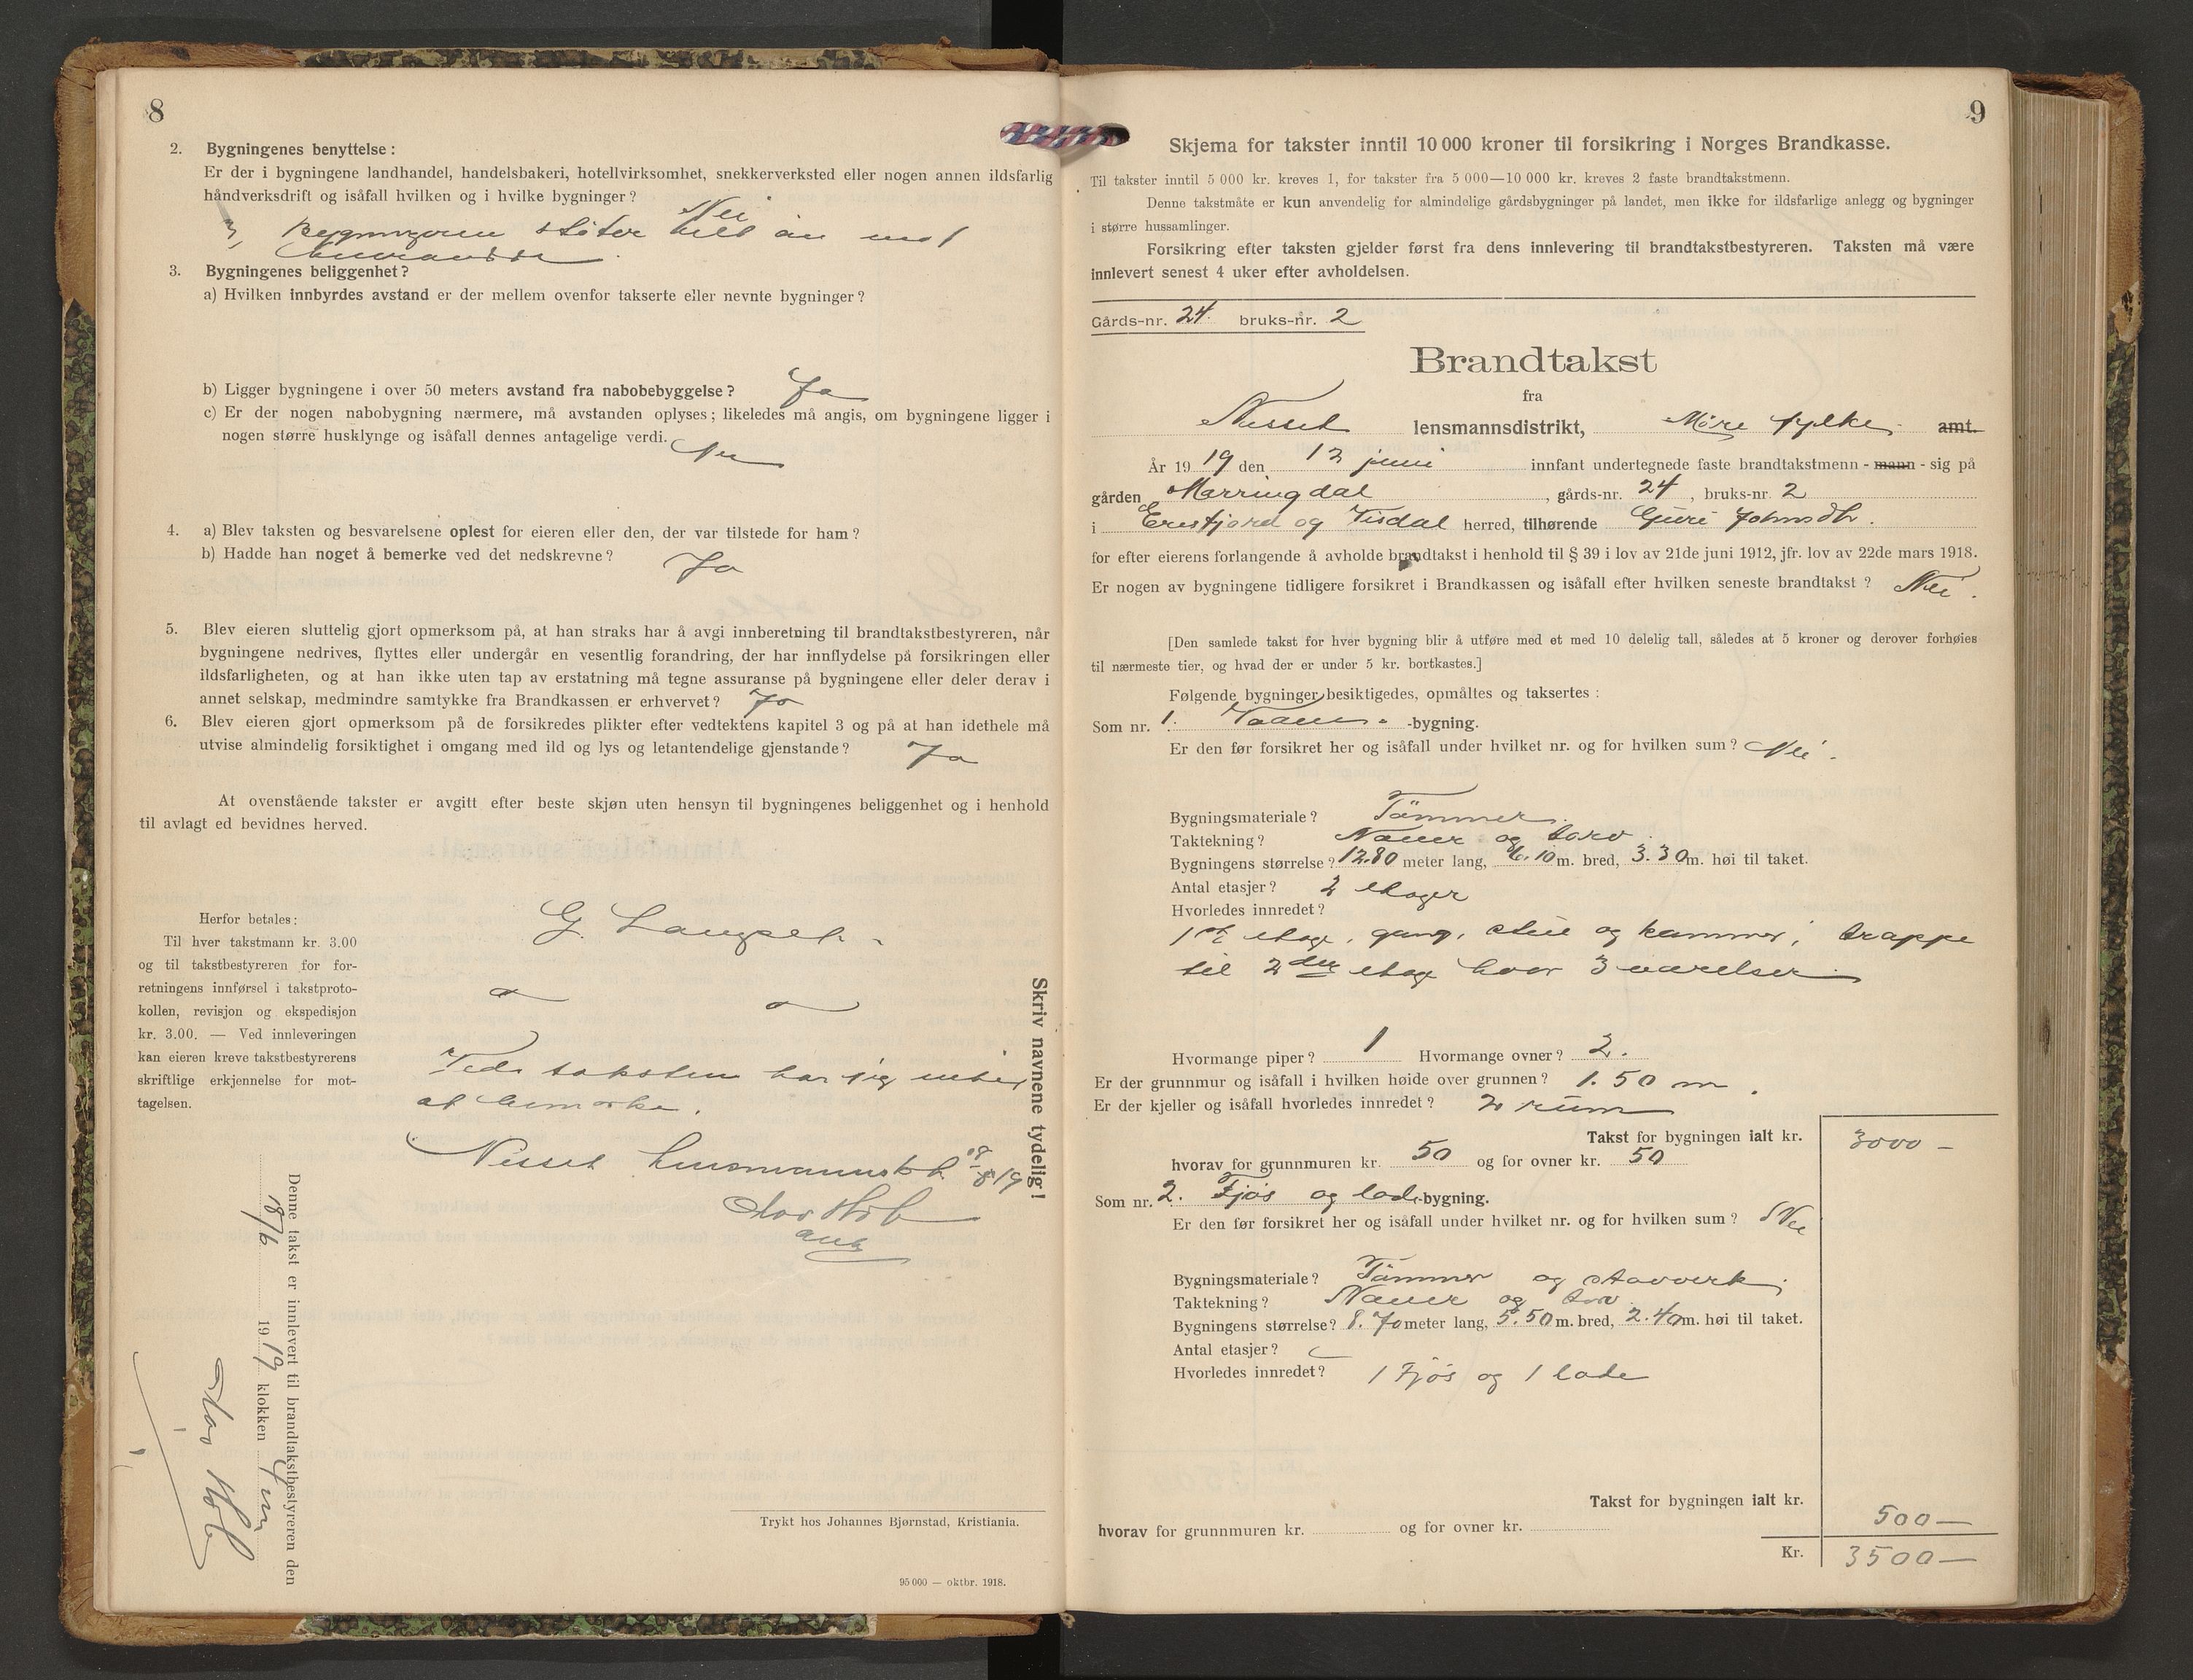 8
2. Bygningenes benyttelse :
Er der i bygningene landhandel, handelsbakeri, hotellvirksomhet, snekkerverksted eller nogen annen ildsfarlig
håndverksdrift og isåfall hvilken og i hvilke bygninger ?
Nei
3, Bygningerne stöter helt an mot
hverandre.
3. Bygningenes beliggenhet ?
a) Hvilken innbyrdes avstand er der mellem ovenfor takserte eller nevnte bygninger ?
b) Ligger bygningene i over 50 meters avstand fra nabobebyggelse ? Ja
c) Er der nogen nabobygning nærmere, må avstanden oplyses ; likeledes må angis, om bygningene ligger i
nogen større husklynge og isåfall dennes antagelige verdi. Nei
4. a) Blev taksten og besvarelsene oplest for eieren eller den, der var tilstede for ham ?
b) Hadde han noget å bemerke ved det nedskrevne ? Ja
5. Blev eieren sluttelig gjort opmerksom på, at han straks har å avgi innberetning til brandtakstbestyreren, når
bygningene nedrives, flyttes eller undergår en vesentlig forandring, der har innflydelse på forsikringen eller
ildsfarligheten, og at han ikke uten tap av erstatning må tegne assuranse på bygningene eller deler derav i
annet selskap, medmindre samtykke fra Brandkassen er erhvervet ? Ja
6. Blev eieren gjort opmerksom på de forsikredes plikter efter vedtektens kapitel 3 og på at han idethele må
utvise almindelig forsiktighet i omgang med ild og lys og letantendelige gjenstande ? Ja
At ovenstående takster er avgitt efter beste skjøn uten hensyn til bygningenes beliggenhet og i henhold
til avlagt ed bevidnes herved.
G. Langset.
Herfor betales :
Til hver takstmann kr. 3.00
og til takstbestyreren for for-
retningens innførsel i takstproto-
kollen, revisjon og ekspedisjon
kr. 3.00. — Ved innleveringen
kan eieren kreve takstbestyrerens
skriftlige erkjennelse for mot-
tagelsen.
Ved taksten har jeg intet
at bemerke.
Nesset lensmannsk. 18/6 19
ant
Skriv navnene tydelig !
Denne takst er innlevert til brandtakstbestyreren den
18/6 19 19 klokken
Trykt hos Johannes Bjørnstad, Kristiania.
95 000 — oktbr. 1918.
9
Skjema for takster inntil 10 000 kroner til forsikring i Norges Brandkasse.
Til takster inntil 5 000 kr. kreves 1, for takster fra 5 000—10 000 kr. kreves 2 faste brandtakstmenn.
Denne takstmåte er kun anvendelig for almindelige gårdsbygninger på landet, men ikke for ildsfarlige anlegg og bygninger
i større hussamlinger.
Forsikring efter taksten gjelder først fra dens innlevering til brandtakstbestyreren. Taksten må være
innlevert senest 4 uker efter avholdelsen.
Gårds-nr. 24. bruks-nr. 2
Brandtakst
fra
Nesset lensmannsdistrikt, Möre fylke amt.
År 19 19 den 12 juni innfant undertegnede faste brandtakstmenn - mann - sig på
gården Marringdal, gårds-nr. 24, bruks-nr. 2
i Eresfjord og Visdal herred, tilhørende Guri Johnsdtr.
for efter eierens forlangende å avholde brandtakst i henhold til § 39 i lov av 21de juni 1912, jfr. lov av 22de mars 1918.
Er nogen av bygningene tidligere forsikret i Brandkassen og isåfall efter hvilken seneste brandtakst ? Nei.
[Den samlede takst for hver bygning blir å utføre med et med 10 delelig tall, således at 5 kroner og derover forhøies
til nærmeste tier, og hvad der er under 5 kr. bortkastes.]
Følgende bygninger besiktigedes, opmåltes og taksertes :
Som nr. 1. Vaanings-bygning.
Er den før forsikret her og isåfall under hvilket nr. og for hvilken sum ? Nei.
Bygningsmateriale ? Tömmer.
Taktekning ? Næver og torv.
Bygningens størrelse ? 12.80 meter lang, 6.10 m. bred, 3.30 m. høi til taket.
Antal etasjer ? 2 etager
Hvorledes innredet ?
1ste etage, gang, stue og kammer, trappe
til 2den etage hvor 3 værelser
Hvormange piper ? 1 Hvormange ovner ? 2.
Er der grunnmur og isåfall i hvilken høide over grunnen ? 1.50 m.
Er der kjeller og isåfall hvorledes innredet ? 2 rum
Takst for bygningen ialt kr. 3000 —
hvorav for grunnmuren kr. 50 og for ovner kr. 50
Som nr. 2. Fjøs og lade-bygning.
Er den før forsikret her og isåfall under hvilket nr. og for hvilken sum ? Nei
Bygningsmateriale ? Tömmer og stavverk
Taktekning ? Næver og torv
Bygningens størrelse ? 8.70 meter lang, 5.50 m. bred, 2.40 m. høi til taket.
Antal etasjer ?
Hvorledes innredet ? 1 Fjøs og 1 lade
Takst for bygningen ialt kr. 500 —
hvorav for grunnmuren kr. og for ovner kr.
Kr. 3500 —